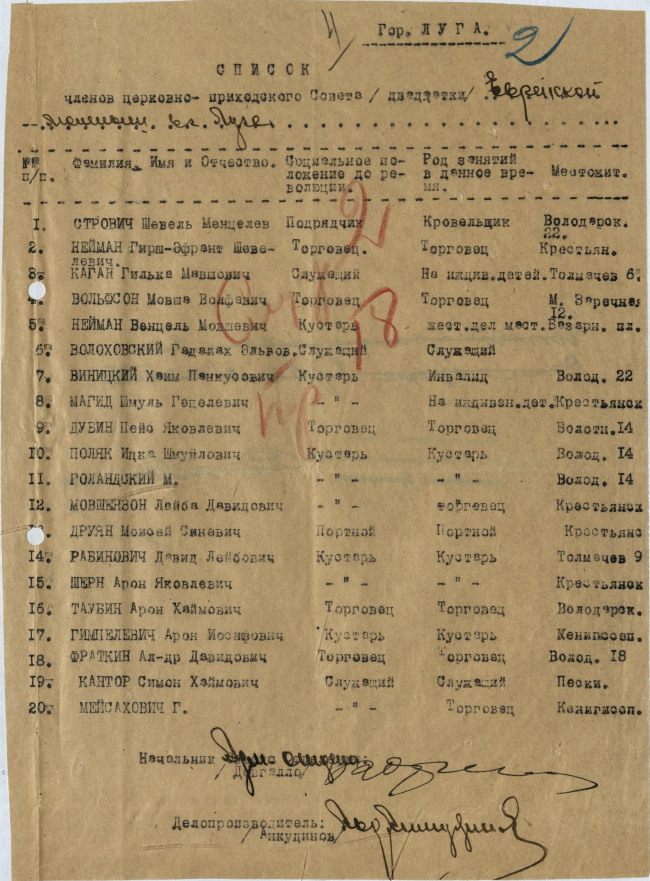 4 Гор. ЛУГА. 2
СПИСОК
членов церковно- приходского Совета / двадцатки/ Еврейской
общины. гор. Луга.
№№ Фамилия, Имя и Отчество. Социальное по- Род занятий
п/п. ложение до ре- в данное вре- Местожит.
волюции. мя.
1. СТРОВИЧ Шевель Менцелев Подрядчик Кровельщик Володарск.
22.
2. НЕЙМАН Гирш-Эфраит Шеве- Торговец. Торговец Крестьян.
левич.
3. КАГАН Гилька Мавшович Служащий На иждив.детей. Толмачев 6
4. ВОЛЬФСОН Мовша Вольфович Торговец Торговец М. Заречная
12.
5. НЕЙМАН Венцель Мовшевич Кустарь жест.дел маст. Базарн. пл.
6. ВОЛОХОВСКИЙ Гадалах Эльвов. Служащий Служащий
7. ВИНИЦКИЙ Хаим Пинкусович Кустарь Инвалид Волод. 22
8. МАГИД Шмуль Гецелевич -"- На иждивен.дет. Крестьянск
9. ДУБИН Пейо Яковлевич Торговец Торговец Волотн.14
10. ПОЛЯК Ицка Шмуйлович Кустарь Кустарь Волод. 14
11. ГОЛАНДСКИЙ М. -"- -"- Волод. 14
12. МОВШЕНЗОН Лейба Давидович -"- торговец Крестьянск
ДРУЯН Моисей Синевич Портной Портной Крестьянс
14. РАБИНОВИЧ Давид Лейбович Кустарь Кустарь Толмачев 9
15. ШЕРН Арон Яковлевич -"- -"- Крестьянск
16. ТАУБИН Арон Хаймович Торговец Торговец Володарск.
17. ГИМПЕЛЕВИЧ Арон Иосифович Кустарь Кустарь Кенигиссеп.
18. ФРАТКИН Ал-др Давидович Торговец Торговец Волод. 18
19. КАНТОР Симон Хаймович Служащий Служащий Пески.
20. МЕЙСАХОВИЧ Г. -"- Торговец Кенигиссп.
Начальник
Довгалло/
Делопроизводитель:
Анкудинов/